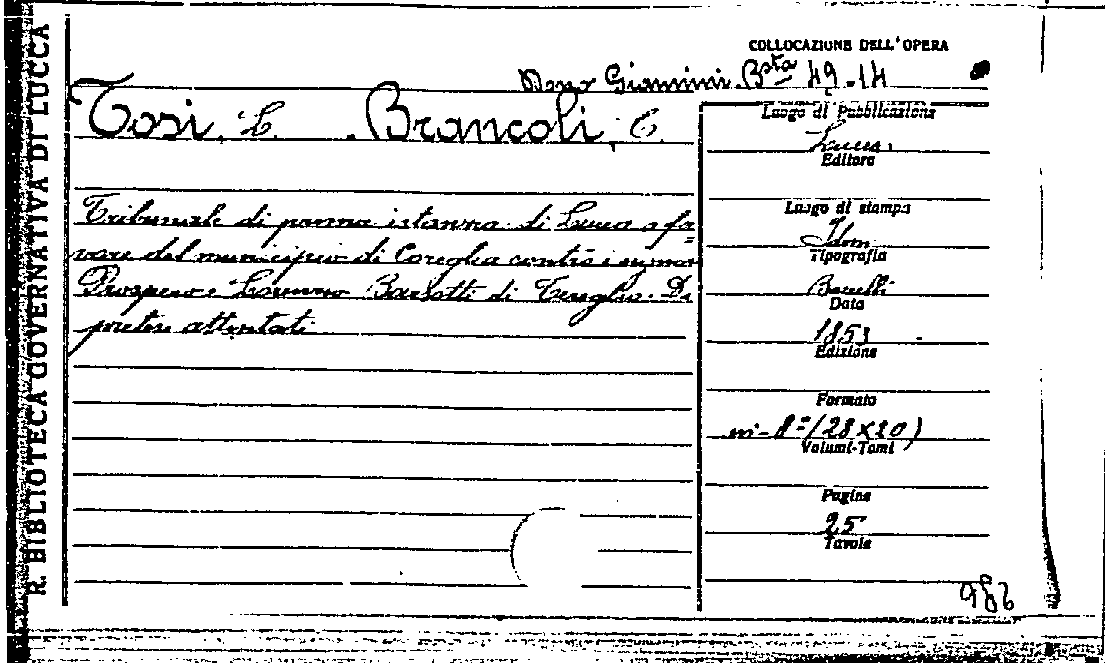 R. BIBLIOTECA GOVERNATIVA DI LUCCA
COLLOCAZIONE DELL'OPERA
Dono Giannini. Bsta 49.14
Tosi, L. Brancoli, C.
Tribunale di prima istanza di Lucca a fa=
vore del municipio di Coreglia contro i signori
Prospero e Lorenzo Barsotti di Tereglio. Di
pretesi attentati
Luogo di Pubblicazione
Lucca
Editore
Luogo di stampa
Idem
Tipografia
Data
1853
Edizione
Formato
in-8º (28x20)
Volumi-Tomi
Pagine
25
Tavole
982